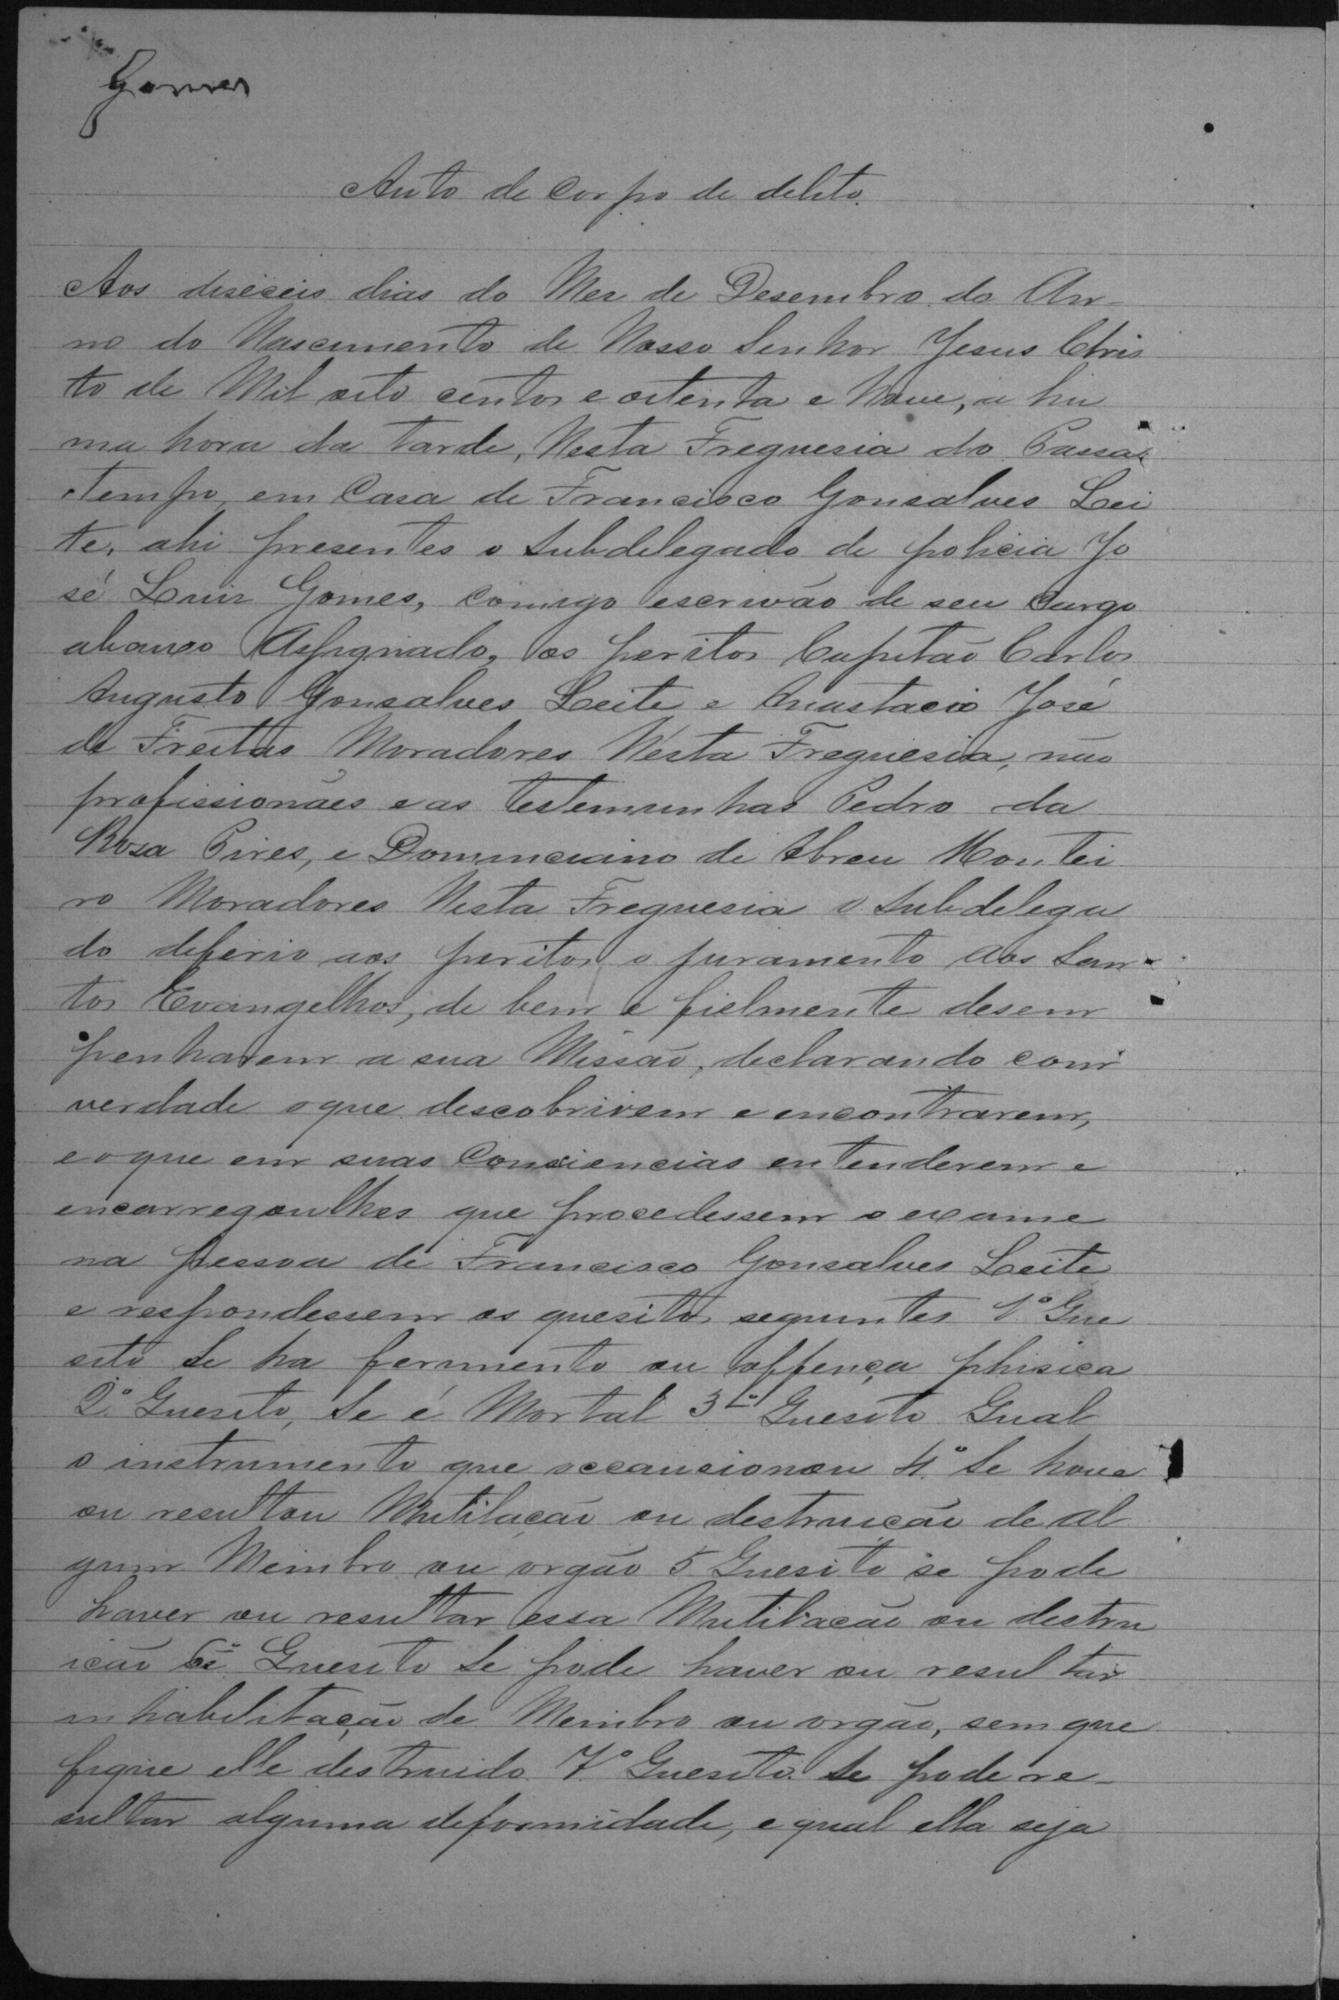 Gomes
Auto de Corpo de delito.
Aos diseceis dias do Mez de Desembro do An-
no do Nascimento de Nosso Senhor Jesus Chris
to de Mil oito centos e oitenta e Nove, a hu
ma hora da tarde, Nesta Freguesia do Passa-
Tempo, em Casa de Francisco Gonsalves Lei
te, ahi presentes o Subdelegado de policia Jo
sé Luiz Gomes, comigo escrivão de seu Cargo
abaixo Assignado, os peritos Capitão Carlos
Augusto Gonsalves Leite e Anastacio José
de Freitas Moradores Nesta Freguesia, não
profissionáes e as testemunhas Pedro da
Rosa Pires, e Dominciano de Abreu Montei
ro Moradores Nesta Freguesia o Subdelega
do deferio aos peritos o juramento aos San-
tos Evangelhos, de bem e fielmente desem
penharem a sua Missão, declarando com
verdade oque descobrirem e encontrarem,
e oque em suas Consciencias entenderem e
encarregoulhes que procedessem o exame
na pessoa de Francisco Gonsalves Leite
e respondessem os quesitos seguntes 1º Que
sito Se ha ferimento ou offença phisica
2º Quesito, Se é Mortal 3º Quesito Qual
o instrumento que occausionou 4º Se houve
ou resultou Mutilação ou destruição de al
gum Membro ou orgão 5 Quesito se pode
haver ou resultar essa Mutilação ou destru
ição 6º Quesito Se pode haver ou resultar
inhabilitação de Membro ou orgão, sem que
fique elle destruido 7º Quesito. Se pode re-
sultar alguma deformidade, e qual ella seja